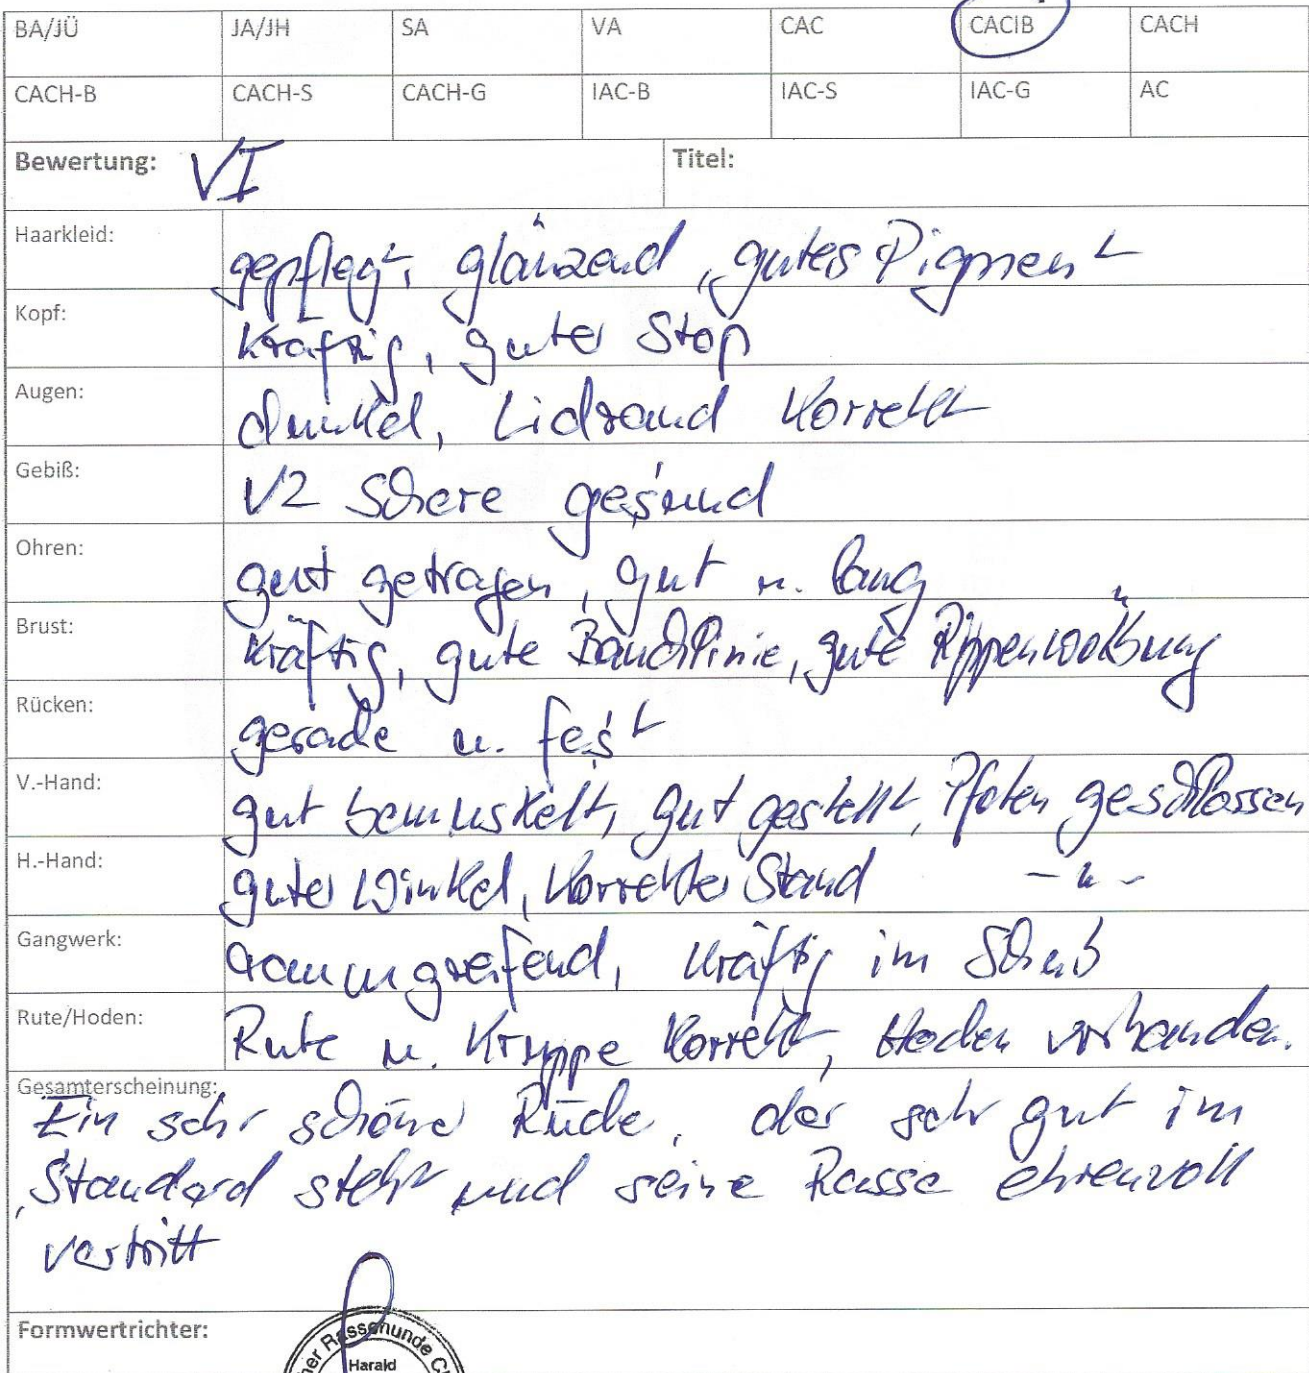 BA/JÜ JA/JH SA VA CAC CACIB CACH
CACH-B CACH-S CACH-G IAC-B IAC-S IAC-G AC
Bewertung: VI Titel:
Haarkleid: gepflegt, glänzend, gutes Pigment
Kopf: kräftig, guter Stop
Augen: dunkel, Lidrand korrekt
Gebiß: V2 Schere gesund
Ohren: gut getragen, gut u. lang
Brust: kräftig, gute Bauchlinie, gute Rippenwölbung
Rücken: gerade u. fest
V.-Hand: gut bemuskelt, gut gestellt, Pfoten geschlossen
H.-Hand: guter Winkel, korrekter Stand – " –
Gangwerk: raumgreifend, kräftig im Schub
Rute/Hoden: Rute u. Kruppe korrekt, Hoden vorhanden.
Gesamterscheinung:
Ein sehr schöner Rüde, der sehr gut im
Standard steht und seine Rasse ehrenvoll
vertritt
Formwertrichter:
Harald